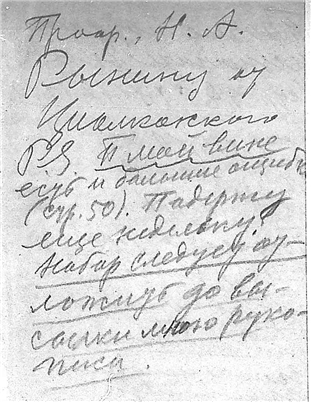 Проф., Н. А.
Рынину от
Циолковского
P.S. По моей вине
есть и большие ошибки
(стр. 50). Подержу
еще недельку!
Набор следует от-
ложить до вы-
сылки мною руко-
писи.